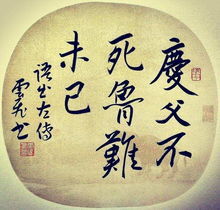 慶父不
死魯難
未已
語出左傳
雲飛書